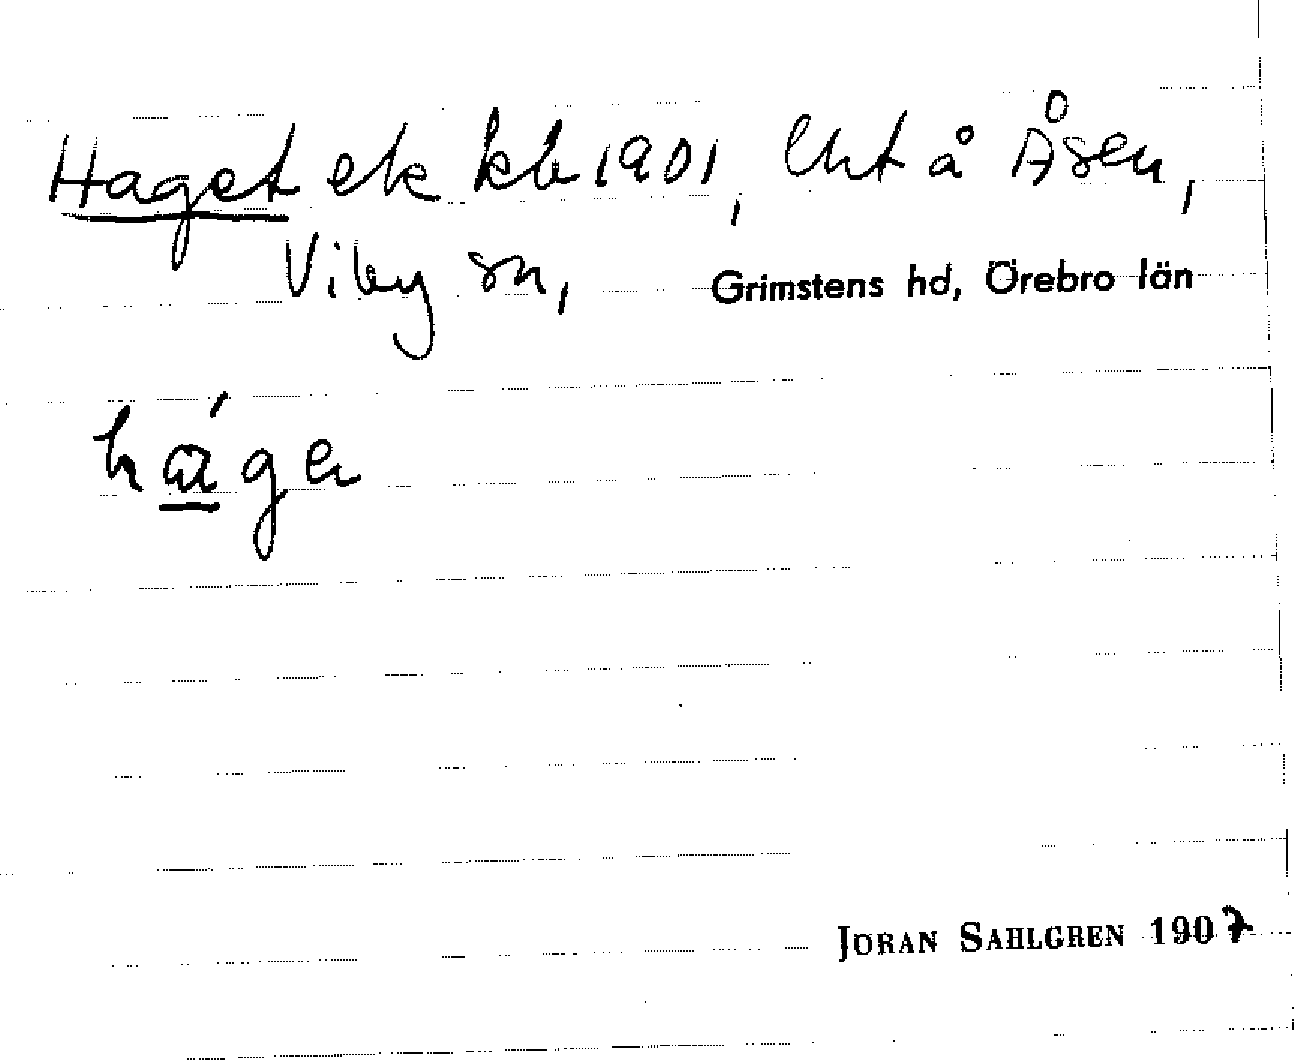 Haget ek kb 1901, Lht å Åsen,
Viby sn, Grimstens hd, Örebro län
há̱ge
JÖRAN SAHLGREN 1907